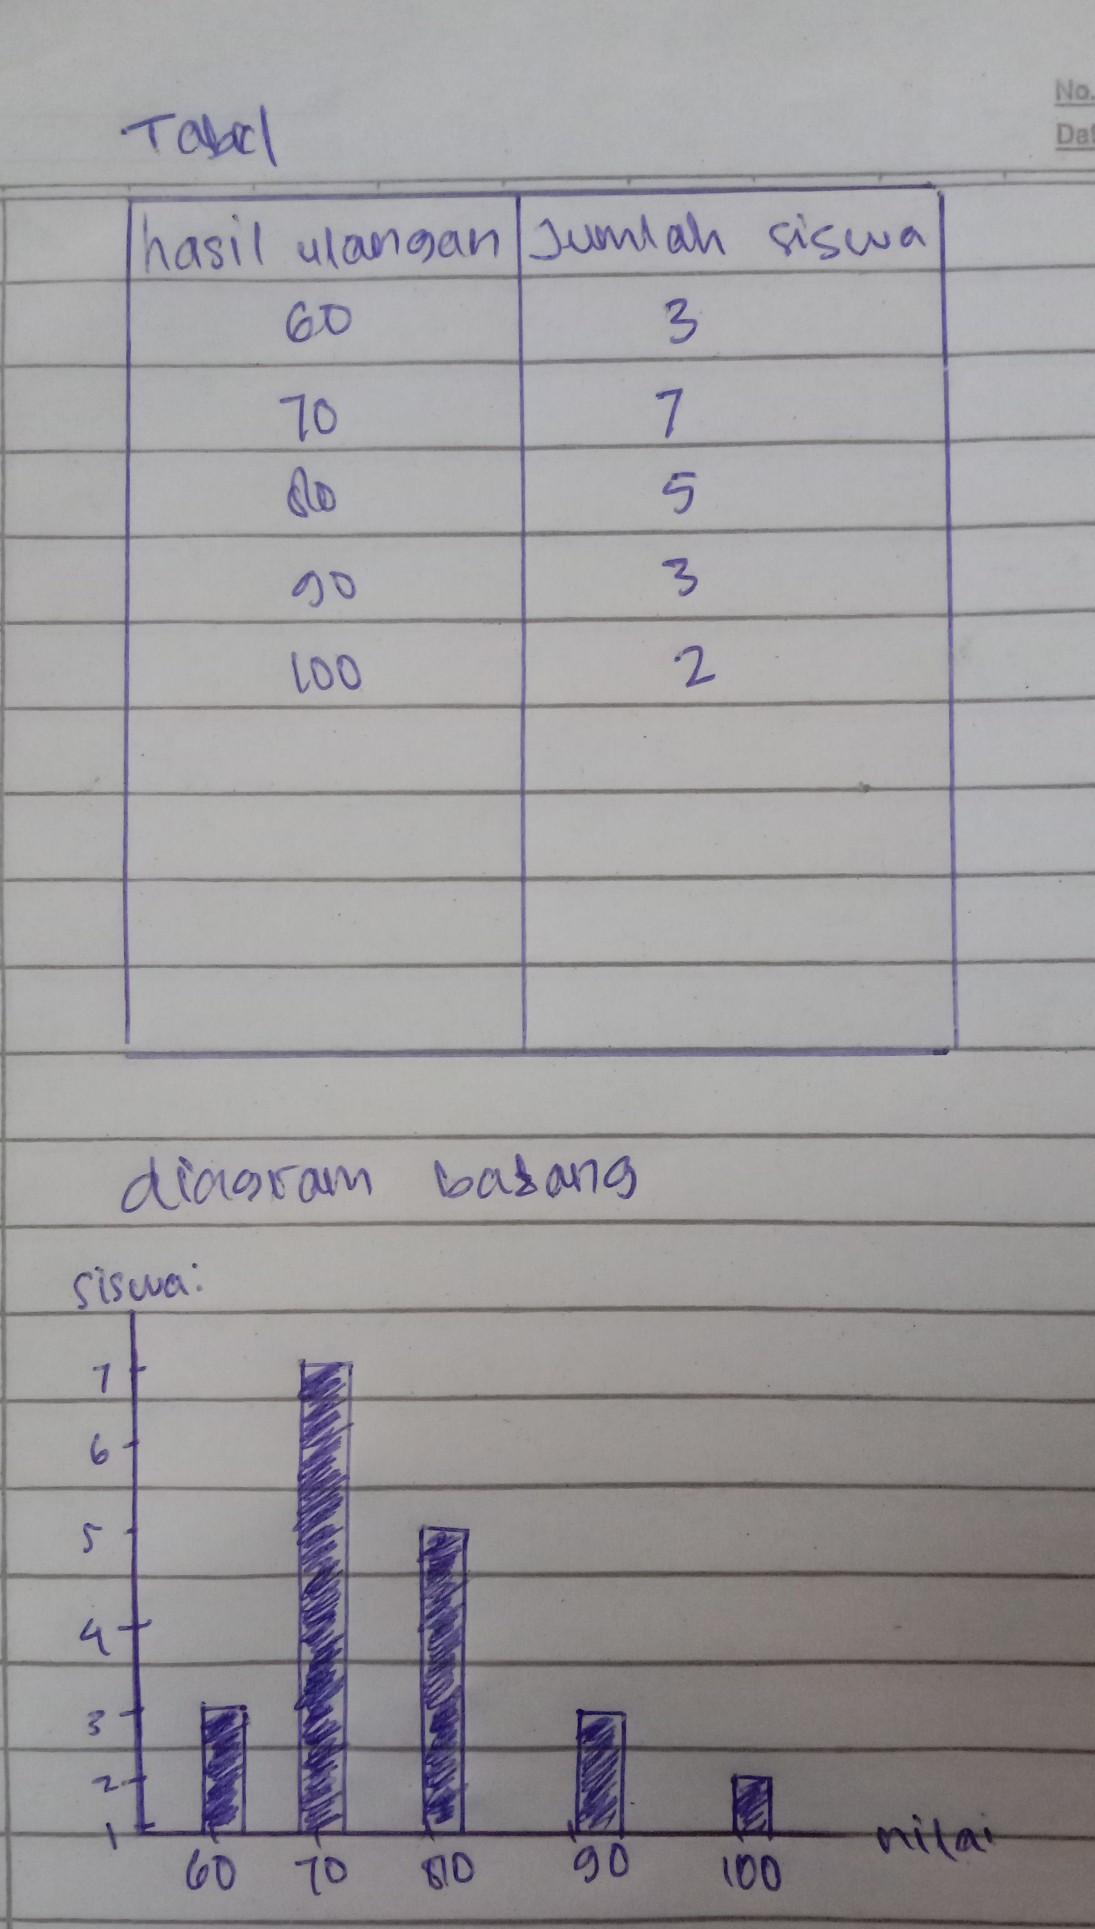 No.
Dat
Tabel
hasil ulangan Jumlah siswa
60 3
70 7
80 5
90 3
100 2
diagram batang
siswa:
7
6
5
4
3
2
1
60 70 80 90 100 nilai